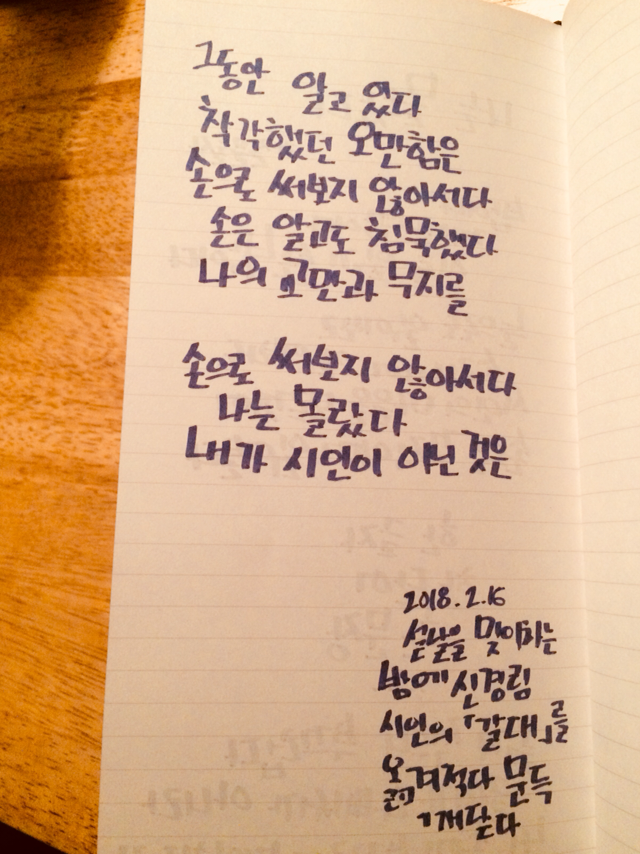 그동안 알고 있다
착각했던 오만함은
손으로 써보지 않아서다
손은 알고도 침묵했다
나의 교만과 무지를
손으로 써보지 않아서다
나는 몰랐다
내가 시인이 아닌 것은
2018.2.16
설날을 맞이하는
밤에 신경림
시인의 「갈대」를
옮겨적다 문득
깨닫다